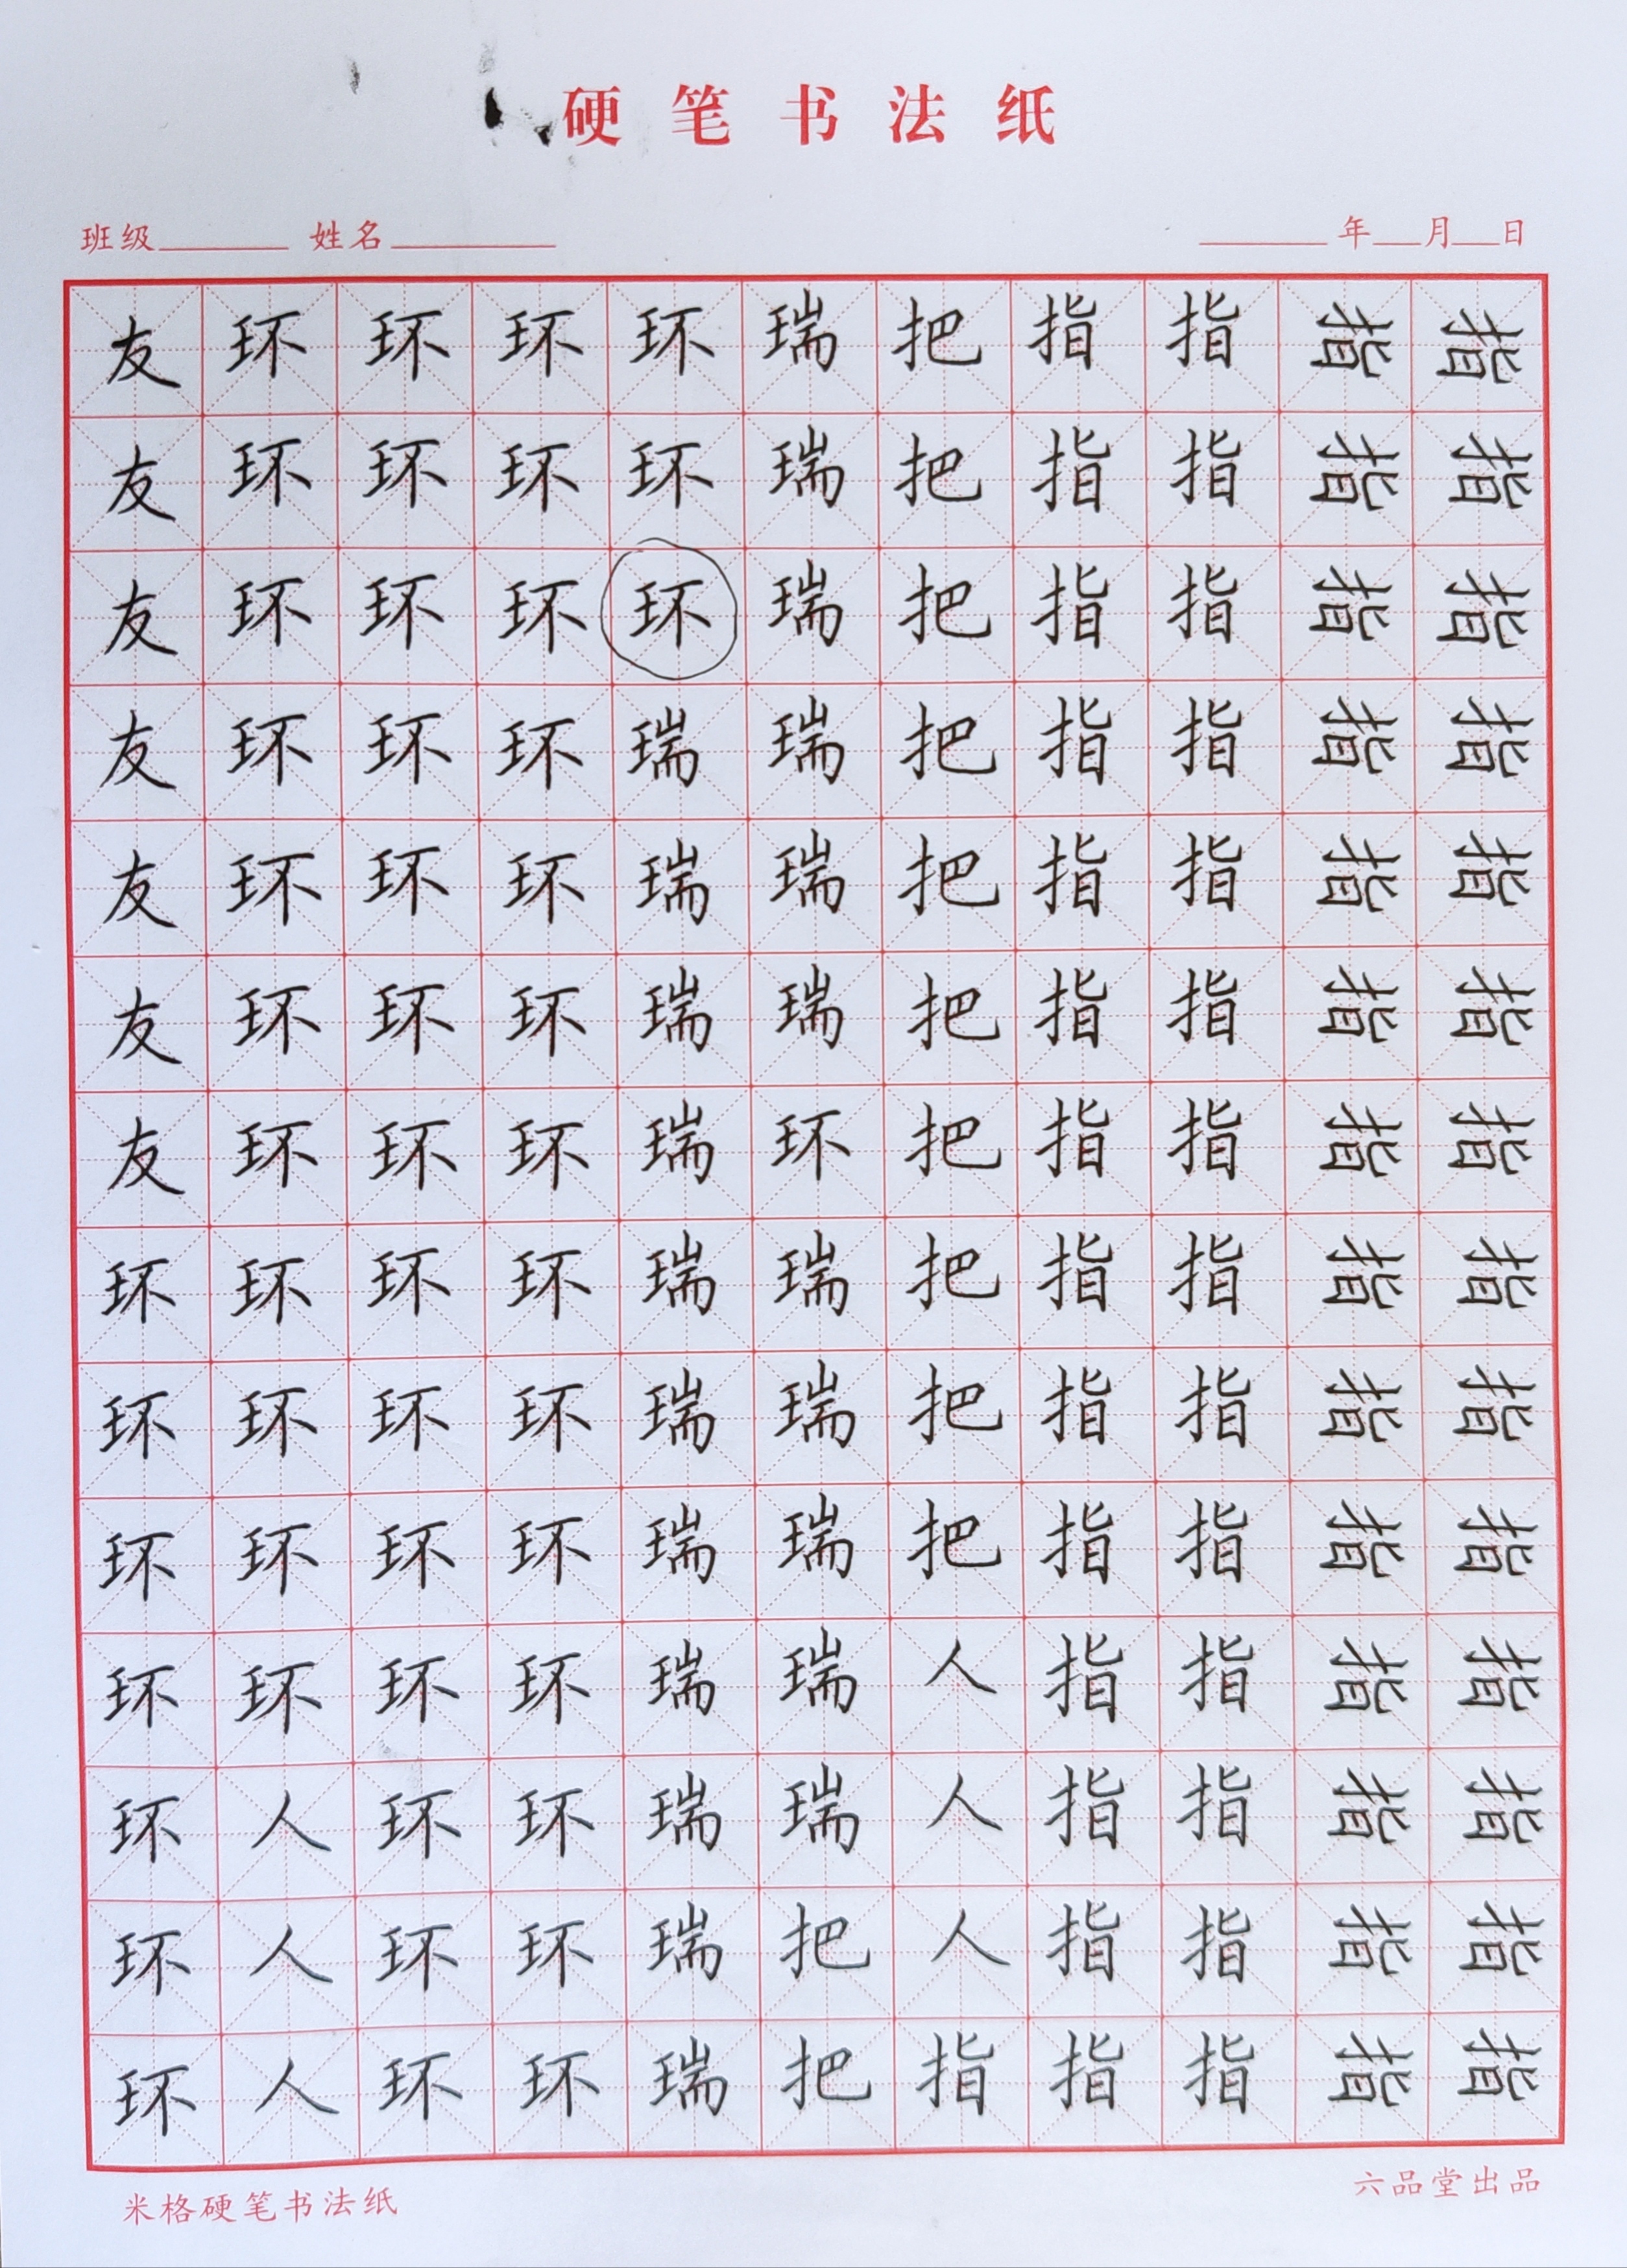 硬笔书法纸
班级 姓名 年 月 日
友环环环环瑞把指指指指
友环环环环瑞把指指指指
友环环环环瑞把指指指指
友环环环瑞瑞把指指指指
友环环环瑞瑞把指指指指
友环环环瑞瑞把指指指指
友环环环瑞环把指指指指
环环环环瑞瑞把指指指指
环环环环瑞瑞把指指指指
环环环环瑞瑞把指指指指
环环环环瑞瑞人指指指指
环人环环瑞瑞人指指指指
环人环环瑞把人指指指指
环人环环瑞把指指指指指
米格硬笔书法纸 六品堂出品